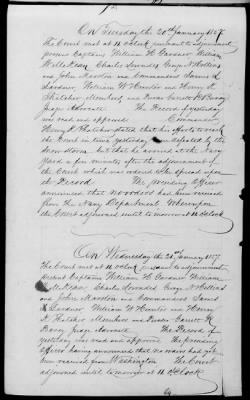 On Tuesday the 20th January 1857
The Court met at 11 o'clock pursuant to adjournment
present Captains William H. Gardner William
McKean Charles Lowndes George N Hollins
and John Marston and Commanders James L
Lardner William W Hunter and Henry K
Thatcher Members and Purser Garrett R Barry
Judge Advocate The Record of yesterday
was read and approved Commander
Henry K Thatcher stated that his efforts to reach
the Court in time yesterday was defeated by the
snow storm but that he arrived at the Navy
Yard a few minutes after the adjournment of
the Court which was ordered to be spread upon
the Record The presiding officer
announced that no orders had been received
from the Navy Department Whereupon
the Court adjourned until to morrow at 11 o'clock
On Wednesday the 21st January 1857
The Court met at 11 o'clock pursuant to adjournment
Present Captains William H Gardner William
McKean Charles Lowndes George N Hollins
and John Marston and Commanders James
L Lardner William W Hunter and Henry
K Thatcher Members and Purser Garrett R
Barry Judge Advocate The Record of
yesterday was read and approved The presiding
officer having announced that no orders had yet
been received from Washington The Court
adjourned until to morrow at 11 o'clock